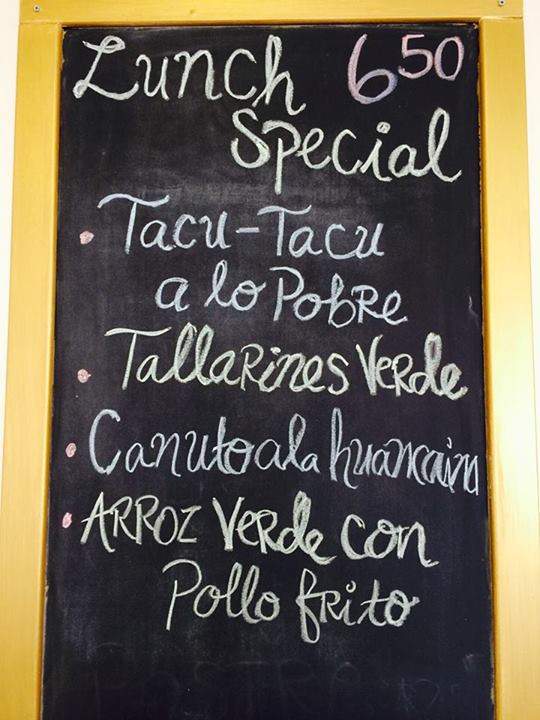 Lunch 6 50
Special
• Tacu-Tacu
a lo Pobre
• Tallarines Verde
• Canuto a la huancain
• ARROZ Verde con
Pollo frito